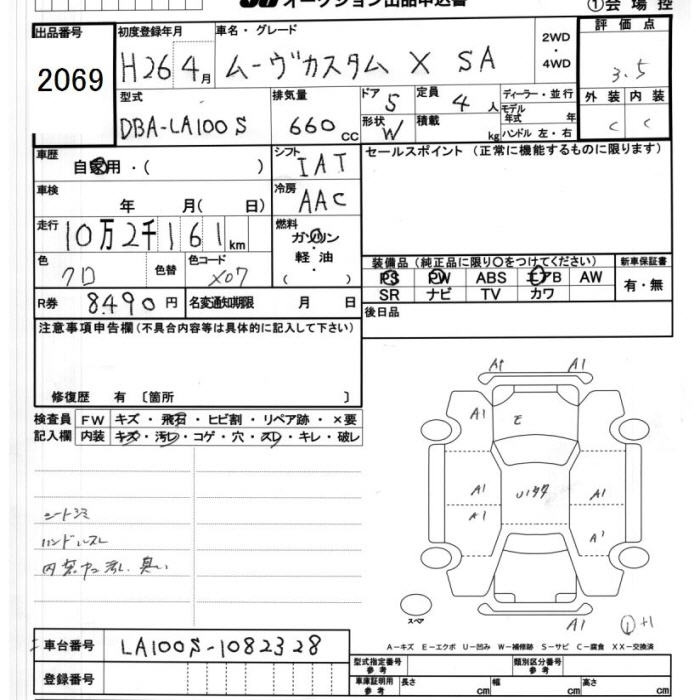 オークション出品申込書
①会場控
出品番号
2069
初度登録年月
H26 4月
車名・グレード
ムーヴカスタム X SA
2WD
・
4WD
評価点
3.5
外装 内装
C C
型式
DBA-LA100S
排気量
660cc
ドア 5
形状 W
定員 4人
積載 kg
ディーラー・並行
モデル年式 年
ハンドル 左・右
車歴
自家用・( )
シフト
IAT
セールスポイント (正常に機能するものに限ります)
車検
年 月( 日)
冷房
AAC
走行
10万2千161km
燃料
ガソリン
・
軽油
( )
色
クロ
色替
色コード
X07
装備品 (純正品に限り○をつけてください)
新車保証書
PS PW ABS エアB AW
SR ナビ TV カワ
有・無
R券 8.490円
名変通知期限 月 日
後日品
注意事項申告欄(不具合内容等は具体的に記入して下さい)
修復歴 有 〔箇所 〕
検査員
記入欄
FW キズ・飛石・ヒビ割・リペア跡・×要
内装 キズ・汚レ・コゲ・穴・スレ・キレ・破レ
シートシミ
ハンドルスレ
A1 A1
A1
E
A1
A1
A1
A1
A1
A1
スペア
A-キズ E-エクボ U-凹み W-補修跡 S-サビ C-腐食 XX-交換済
車台番号 LA100S-1082328
登録番号
型式指定番号
参考
類別区分番号
参考
車庫証明用
参考
長さ cm 幅 cm 高さ cm